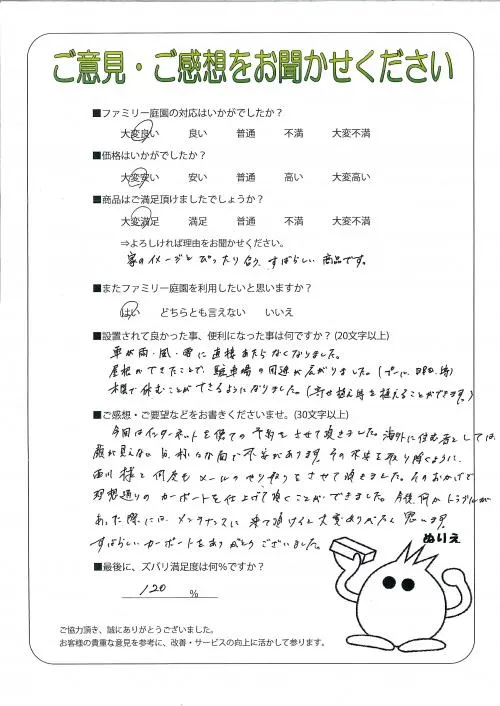 ご意見・ご感想をお聞かせください
■ファミリー庭園の対応はいかがでしたか？
大変良い 良い 普通 不満 大変不満
■価格はいかがでしたか？
大変安い 安い 普通 高い 大変高い
■商品はご満足頂けましたでしょうか？
大変満足 満足 普通 不満 大変不満
⇒よろしければ理由をお聞かせください。
家のイメージとぴったり合う、すばらしい商品です。
■またファミリー庭園を利用したいと思いますか？
はい どちらとも言えない いいえ
■設置されて良かった事、便利になった事は何ですか？(20文字以上)
車が雨・風・雪に直接あたらなくなりました。
屋根ができたことで、駐車場の用途が広がりました。
木陰で休むことができるようになりました。
■ご感想・ご要望などをお書きくださいませ。(30文字以上)
今回はインターネットを使ての予約をさせて頂きました。海外に住む者としては、
顔が見えない分、様々な面で不安があります。その不安を取り除くように、
西川様と何度もメールのやり取りをさせて頂きました。そのおかげで
予想通りのカーポートを仕上げて頂くことができました。今後、何かトラブルが
あった際には、メンテナンスに来て頂けると大変ありがたく思います。
すばらしいカーポートをありがとうございました。
ぬりえ
■最後に、ズバリ満足度は何％ですか？
120 ％
ご協力頂き、誠にありがとうございました。
お客様の貴重な意見を参考に、改善・サービスの向上に活かして参ります。